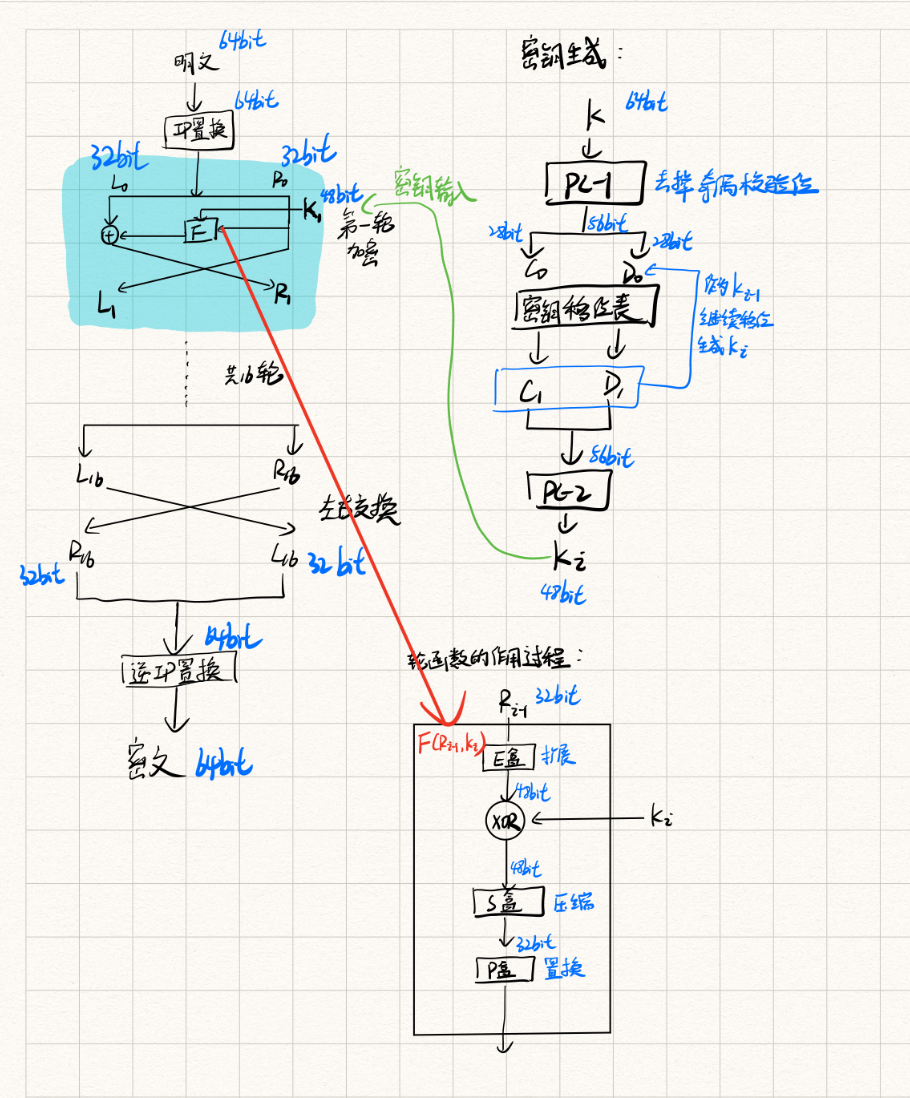 明文 64bit
64bit
IP置换
32bit 32bit
L₀ R₀
48bit
K₁
F
第一轮
加密
L₁ R₁
共16轮
L₁₆ R₁₆
左右交换
R₁₆ L₁₆
32bit 32bit
64bit
逆IP置换
密文 64bit
密钥输入
密钥生成:
K 64bit
PC-1 去掉奇偶校验位
56bit
28bit 28bit
C₀ D₀
密钥移位表
作为Kᵢ₋₁
继续移位
生成Kᵢ
C₁ D₁
56bit
PC-2
Kᵢ
48bit
轮函数的作用过程:
Rᵢ₋₁ 32bit
F(Rᵢ₋₁,Kᵢ)
E盒 扩展
48bit
XOR Kᵢ
48bit
S盒 压缩
32bit
P盒 置换